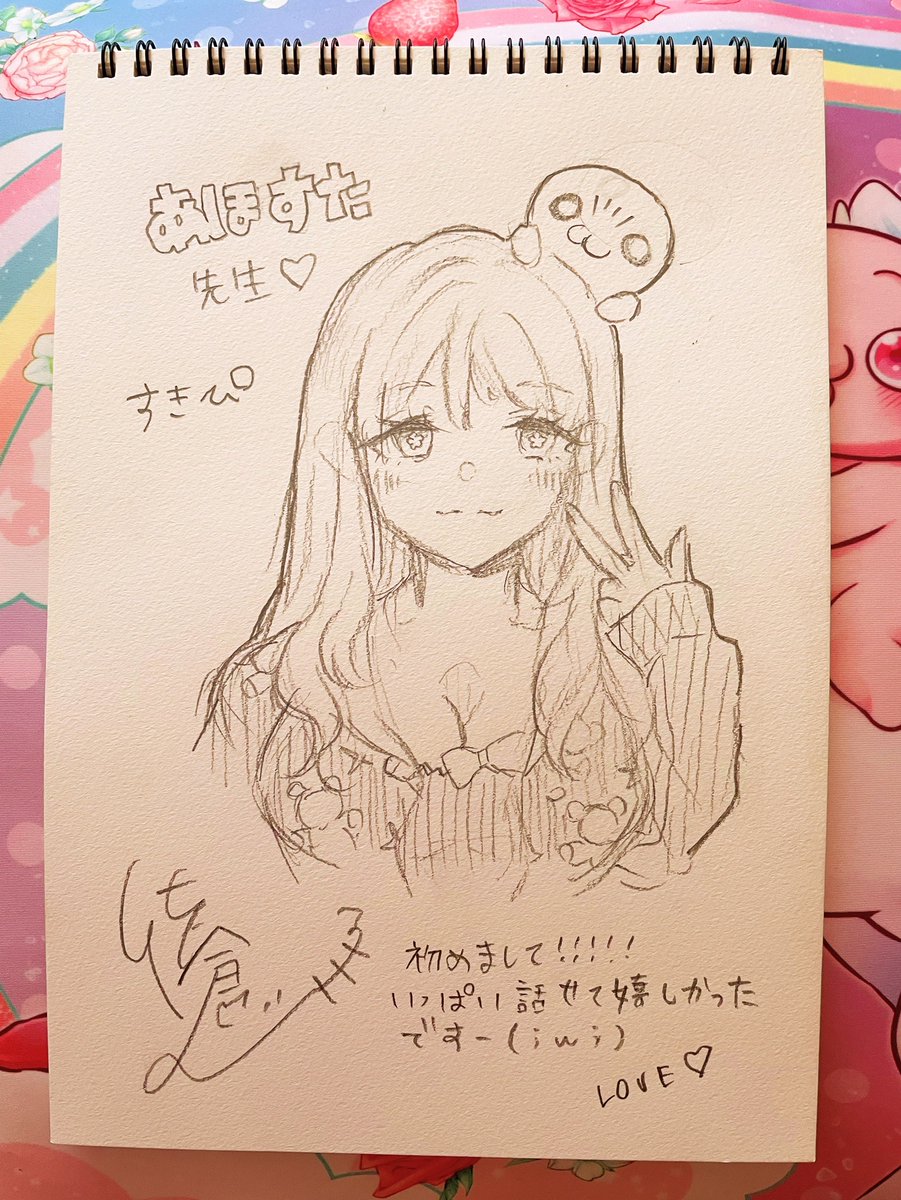 あほすた
先生♡
すきぴ
佐倉
初めまして!!!!!
いっぱい話せて嬉しかった
ですー(;w;)
LOVE♡